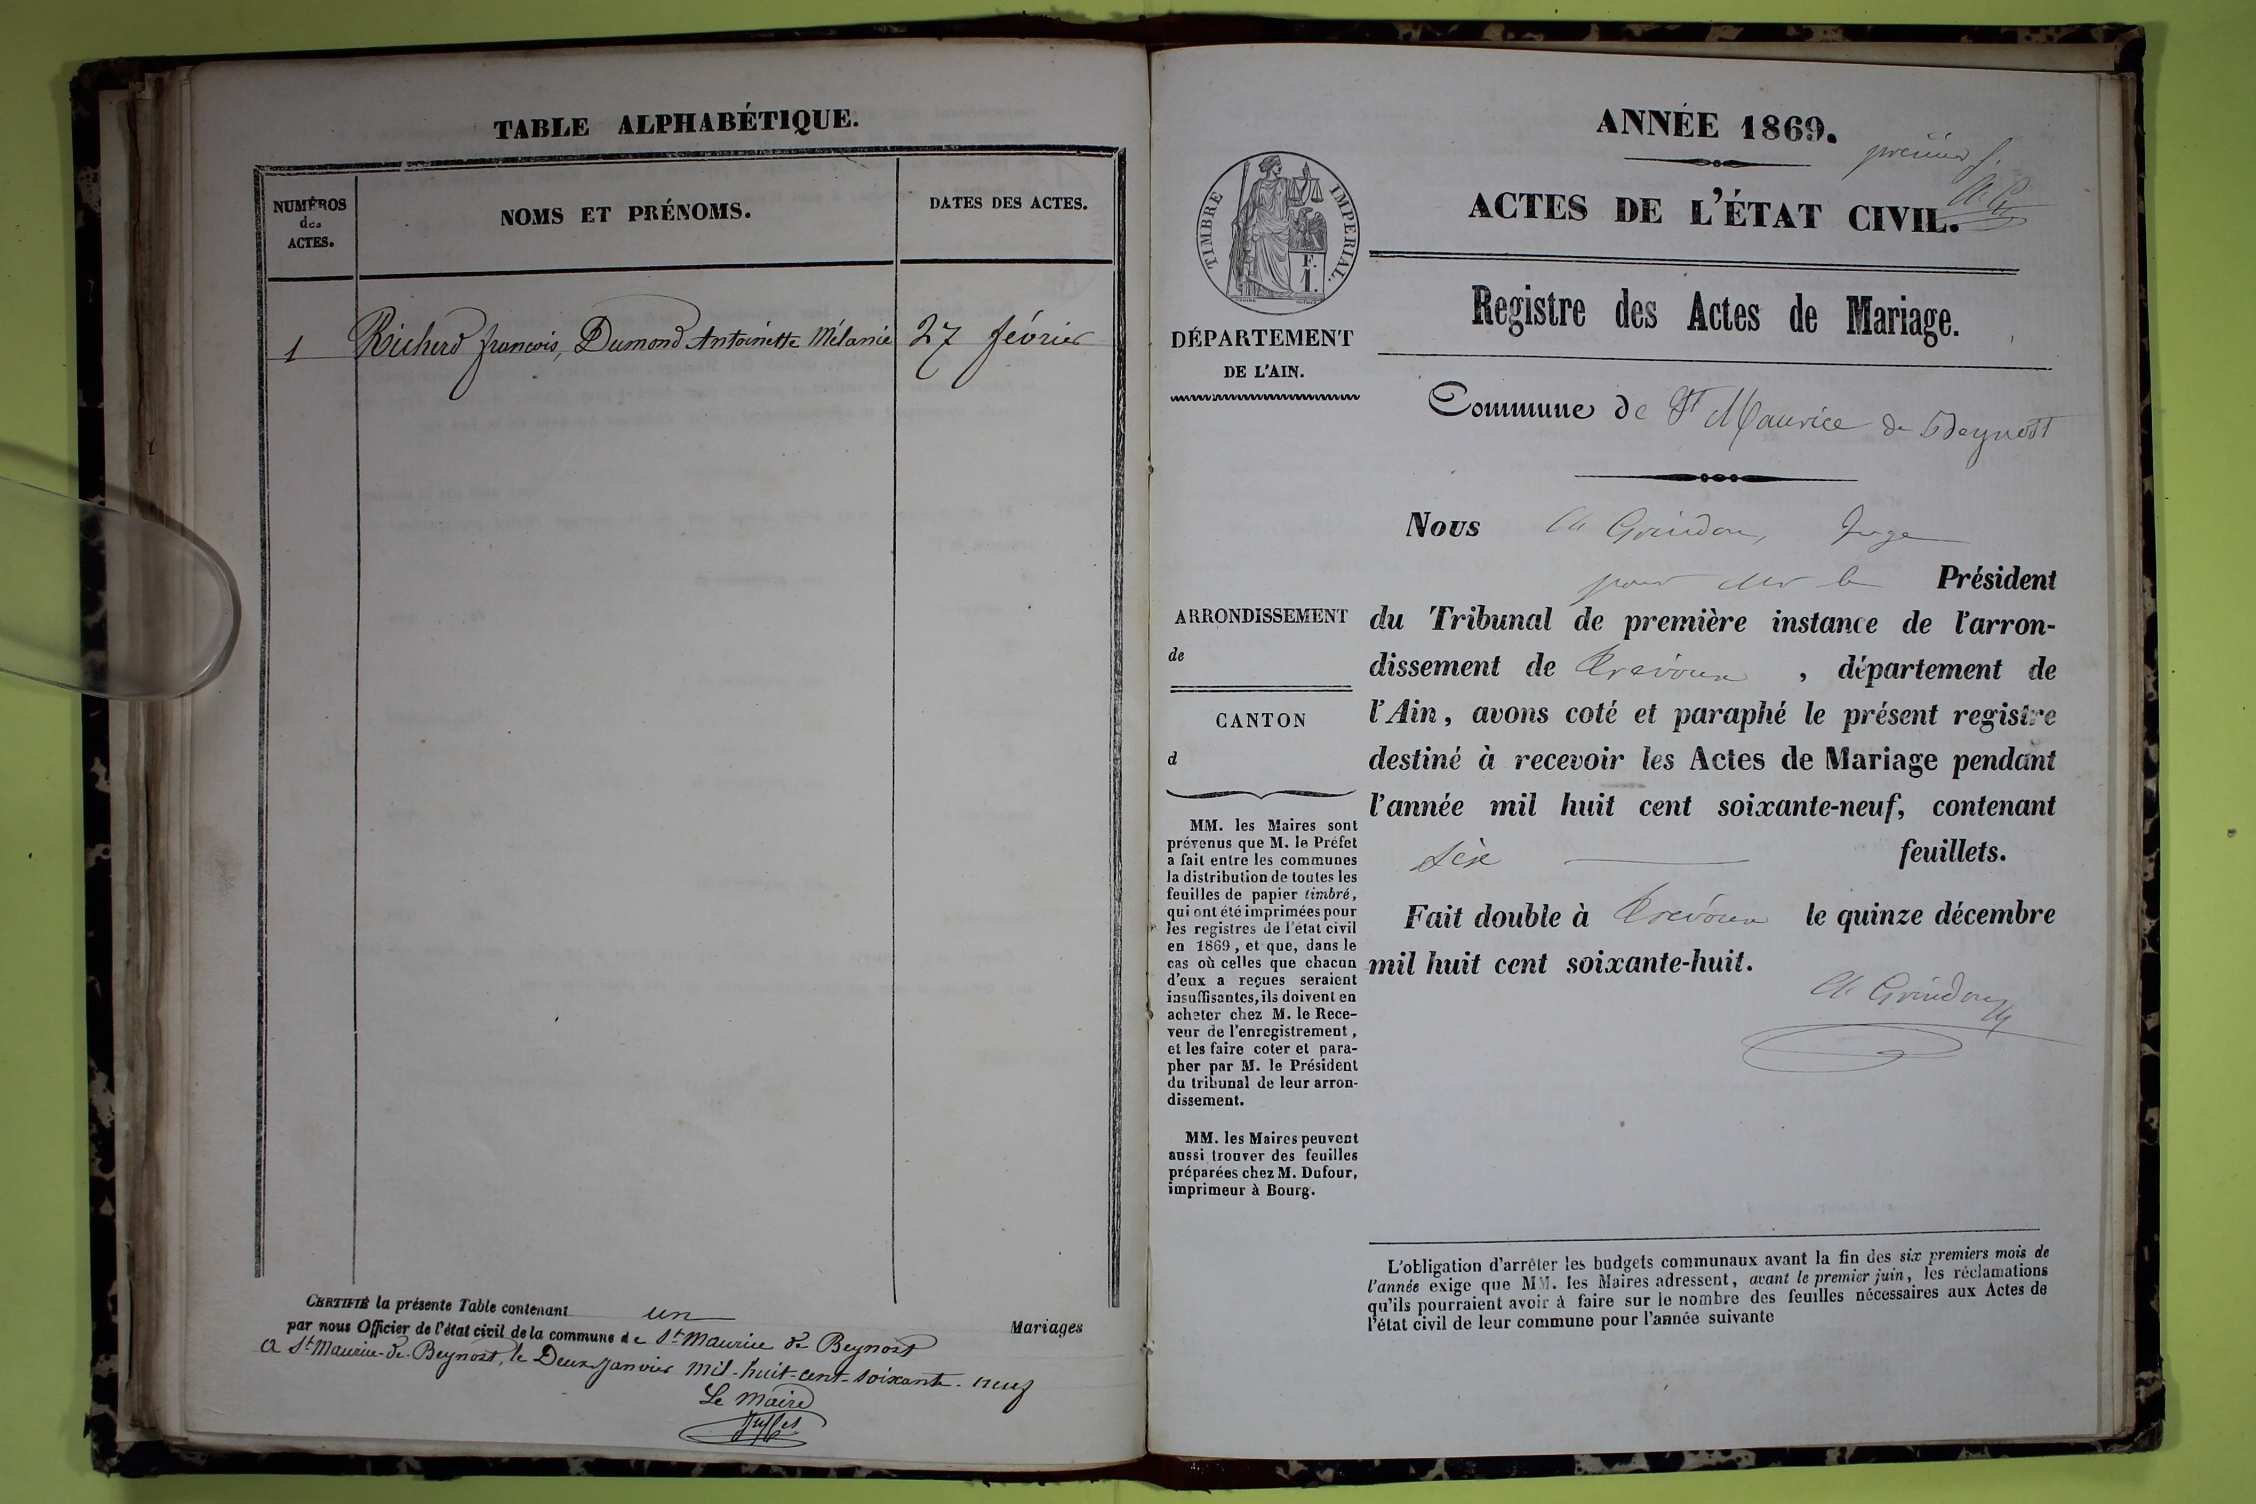 TABLE ALPHABÉTIQUE.
NUMÉROS
des
ACTES.
NOMS ET PRÉNOMS.
DATES DES ACTES.
1 Richerd françois, Dumond Antoinette Mélanie 27 février
CERTIFIÉ la présente Table contenant un Mariages
par nous Officier de l'état civil de la commune de St Maurice de Beynost
A St Maurice-de-Beynost, le Deux Janvier mil-huit-cent-soixante-neuf
Le Maire
ANNÉE 1869.
premier f.
ACTES DE L'ÉTAT CIVIL.
TIMBRE IMPERIAL.
F.
1.
Registre des Actes de Mariage.
DÉPARTEMENT
DE L'AIN.
Commune de St Maurice de Beynost
Nous Ch Grindon, Juge
pour Mr le Président
ARRONDISSEMENT
de
du Tribunal de première instance de l'arron-
dissement de Trévoux, département de
l'Ain, avons coté et paraphé le présent registre
destiné à recevoir les Actes de Mariage pendant
l'année mil huit cent soixante-neuf, contenant
six feuillets.
Fait double à Trévoux le quinze décembre
mil huit cent soixante-huit.
Ch Grindon
CANTON
d
MM. les Maires sont
prévenus que M. le Préfet
a fait entre les communes
la distribution de toutes les
feuilles de papier timbré,
qui ont été imprimées pour
les registres de l'état civil
en 1869, et que, dans le
cas où celles que chacun
d'eux a reçues seraient
insuffisantes, ils doivent en
acheter chez M. le Rece-
veur de l'enregistrement,
et les faire coter et para-
pher par M. le Président
du tribunal de leur arron-
dissement.
MM. les Maires peuvent
aussi trouver des feuilles
préparées chez M. Dufour,
imprimeur à Bourg.
L'obligation d'arrêter les budgets communaux avant la fin des six premiers mois de
l'année exige que MM. les Maires adressent, avant le premier juin, les réclamations
qu'ils pourraient avoir à faire sur le nombre des feuilles nécessaires aux Actes de
l'état civil de leur commune pour l'année suivante